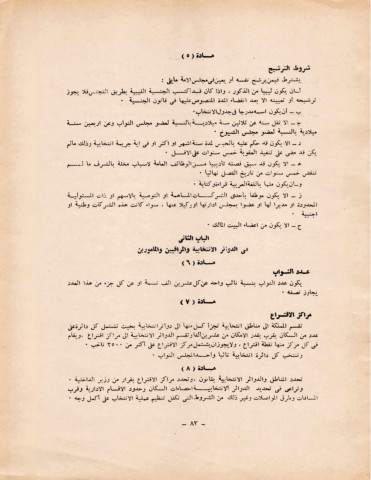 مادة ( ٥ )
شروط الترشيح
يشترط فيمن يرشح نفسه أو يعين في مجلس الامة مايلي :
أ ـ أن يكون ليبيا من الذكور ، واذا كان قد اكتسب الجنسية الليبية بطريق التجنس فلا يجوز
ترشيحه أو تعيينه الا بعد انقضاء المدة المنصوص عليها في قانون الجنسية .
ب ـ أن يكون اسمه مدرجا في جدول الانتخاب .
جـ ـ ألا تقل سنه عن ثلاثين سنة ميلادية بالنسبة لعضو مجلس النواب وعن أربعين سنة
ميلادية بالنسبة لعضو مجلس الشيوخ .
د ـ ألا يكون قد حكم عليه بالحبس لمدة ستة أشهر أو أكثر أو في أية جريمة انتخابية وذلك مالم
يكن قد مضى على تنفيذ العقوبة خمس سنوات على الاقل .
هـ ـ ألا يكون قد سبق فصله تأديبيا من الوظائف العامة لاسباب مخلة بالشرف ما لم
تنقض خمس سنوات من تاريخ الفصل نهائيا .
و ـ أن يكون ملما باللغة العربية قراءة وكتابة .
ز ـ ألا يكون موظفا باحدى الشركات المساهمة أو التوصية بالاسهم أو ذات المسئولية
المحدودة أو مديرا لها أو عضوا بمجلس ادارتها أو وكيلا عنها ، سواء كانت هذه الشركات وطنية أو
اجنبية .
ح ـ ألا يكون من أعضاء البيت المالك .
الباب الثاني
في الدوائر الانتخابية والمراقبين والمأمورين
مادة ( ٦ )
عدد النواب
يكون عدد النواب بنسبة نائب واحد عن كل عشرين الف نسمة أو عن كل جزء من هذا العدد
يجاوز نصفه .
مادة ( ٧ )
مراكز الاقتراع
تقسم المملكة الى مناطق انتخابية تجزأ كل منها الى دوائر انتخابية بحيث تشتمل كل دائرة على
عدد من السكان يقرب بقدر الامكان من عشرين ألفا وتقسم الدوائر الانتخابية الى مراكز اقتراع ، ويقام
في كل مركز منها نقطة اقتراع ، ولا يجوز أن يشتمل مركز الاقتراع على أكثر من ٢٥٠٠ ناخب .
وتنتخب كل دائرة انتخابية نائبا واحدا لمجلس النواب .
مادة ( ٨ )
تحدد المناطق والدوائر الانتخابية بقانون ، وتحدد مراكز الاقتراع بقرار من وزير الداخلية .
وتراعى في تحديد الدوائر الانتخابية احصاءات السكان وحدود الاقسام الادارية وقرب
المسافات وطرق المواصلات وغير ذلك من الشروط التي تكفل تنظيم عملية الانتخاب على أكمل وجه .
ـ ٨٣ ـ